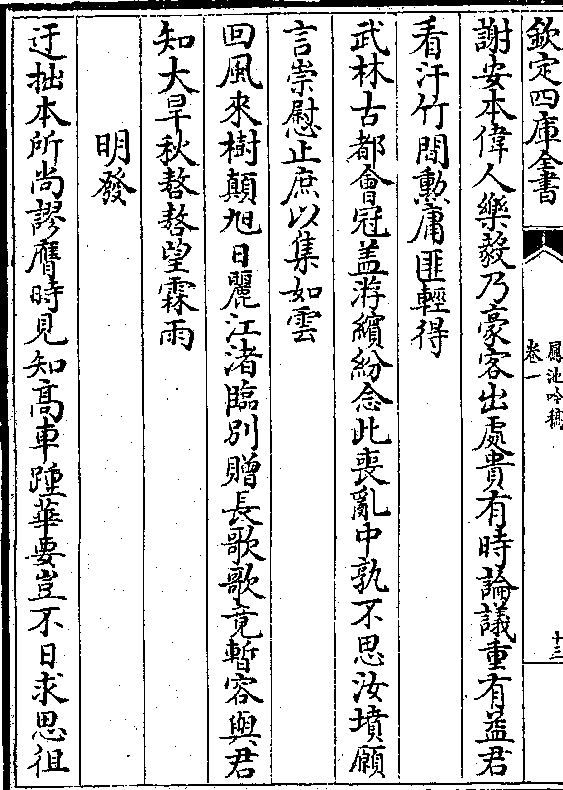 欽定四庫全書
鳳池吟稿
卷一
十三
謝安本偉人樂毅乃豪客出處貴有時論議重有益君
看汗竹間勲庸匪輕得
武林古都會冠盖游繽紛念此喪亂中孰不思汝墳願
言崇慰止庶以集如雲
回風來樹顛旭日麗江渚臨別贈長歌歌竟暫容與君
知大旱秋嗸嗸望霖雨
明發
迂拙本所尚謬膺時見知高車踵華要豈不日求思徂